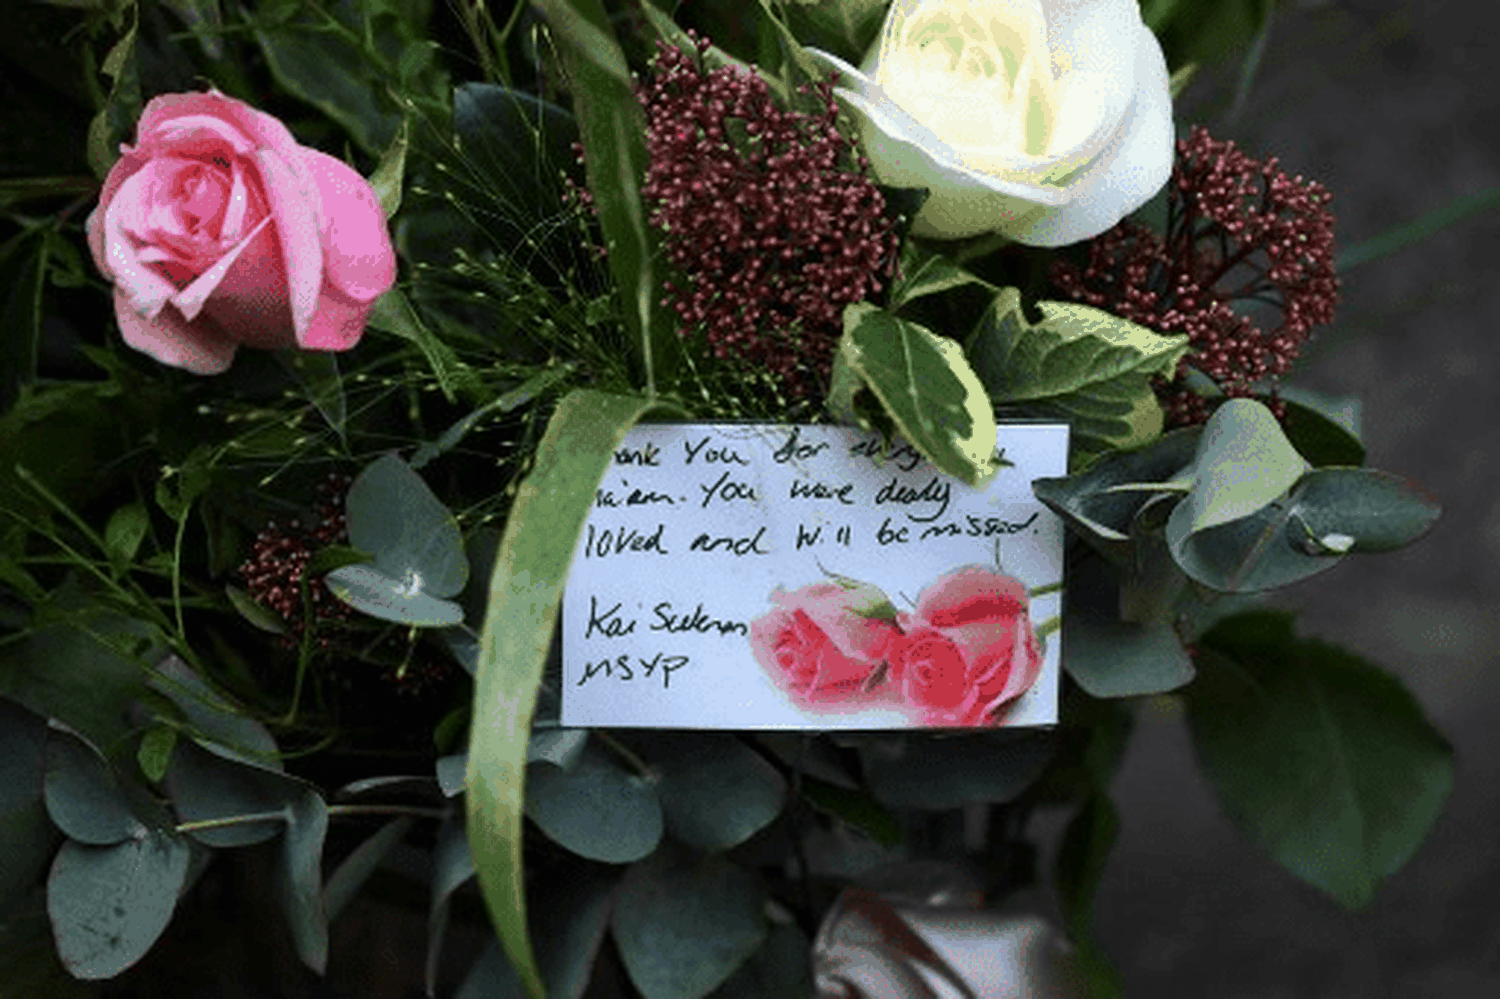 ank You for
ma'am. You were dearly
loved and will be missed.
Kai
MSYP